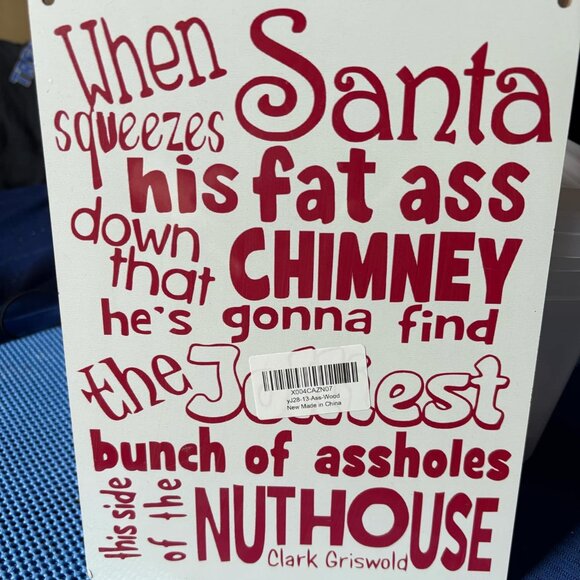 When Santa
squeezes
his fat ass
down that CHIMNEY
he's gonna find
the
X004CAZN07
yJ28-13-Ass-Wood
New Made in China
bunch of assholes
this side of the NUTHOUSE
Clark Griswold